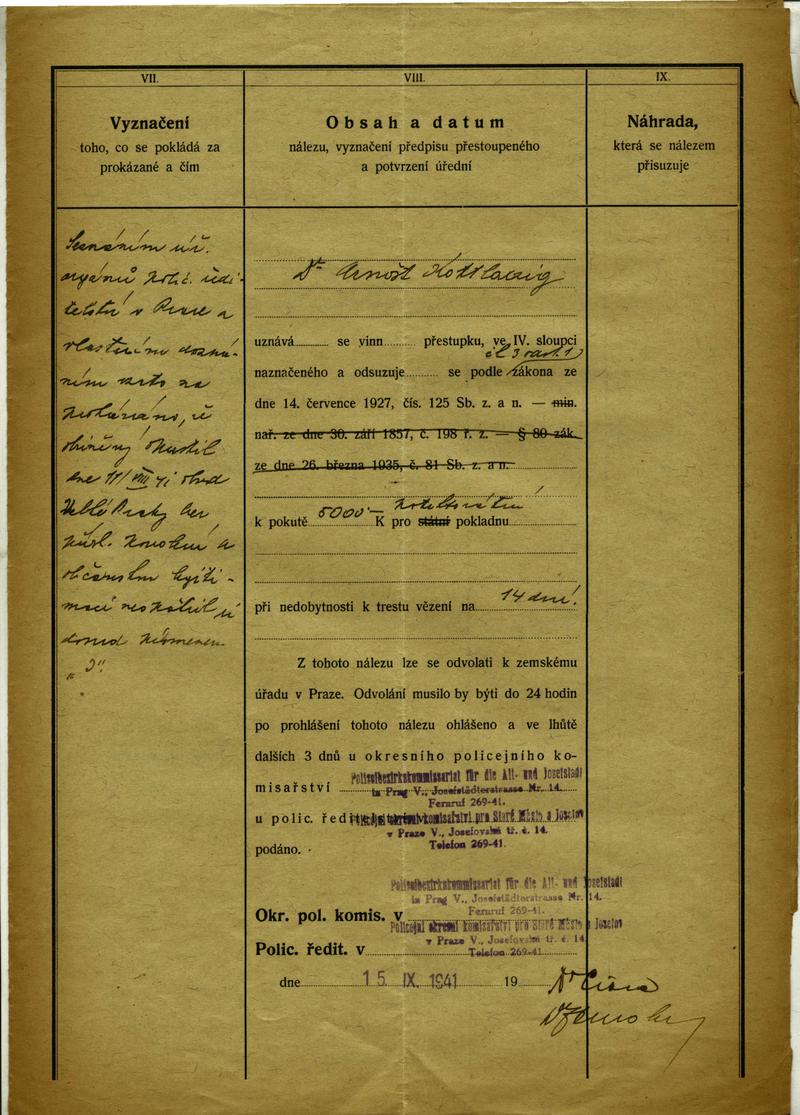 VII.
Vyznačení
toho, co se pokládá za
prokázané a čím
VIII.
Obsah a datum
nálezu, vyznačení předpisu přestoupeného
a potvrzení úřední
IX.
Náhrada,
která se nálezem
přisuzuje
Seznáním úř.
orgánů polic. ředi-
telství v Praze a
vlastním dozná-
ním
obviněný opustil
dne 11/VIII 41 obvod
Velké Prahy bez
a
občanskou legiti-
mací
Dr Arnošt
uznává se vinn přestupku, ve IV. sloupci
čl 3 odst. 1
naznačeného a odsuzuje se podle zákona ze
dne 14. července 1927, čís. 125 Sb. z. a n. — min.
nař. ze dne 30. září 1857, č. 198 ř. z. — § 80 zák.
ze dne 26. března 1935, č. 81 Sb. z. a n.
k pokutě 5000·— K pro státní pokladnu
při nedobytnosti k trestu vězení na 14 dní.
Z tohoto nálezu lze se odvolati k zemskému
úřadu v Praze. Odvolání musilo by býti do 24 hodin
po prohlášení tohoto nálezu ohlášeno a ve lhůtě
dalších 3 dnů u okresního policejního ko-
misařství
Polizeibezirkskommissariat für die Alt- und Josefstadt
in Prag V., Josefstädterstrasse Nr. 14.
Fernruf 269-41.
u polic. ředitelství v
Policejní okresní komisařství pro Staré Město a Josefov
v Praze V., Josefovská tř. č. 14.
Telefon 269-41.
podáno.
Polizeibezirkskommissariat für die Alt- und Josefstadt
in Prag V., Josefstädterstrasse Nr. 14.
Fernruf 269-41.
Okr. pol. komis. v
Policejní okresní komisařství pro Staré Město a Josefov
v Praze V., Josefovská tř. č. 14.
Telefon 269-41.
Polic. ředit. v
dne 15. IX. 1941 19